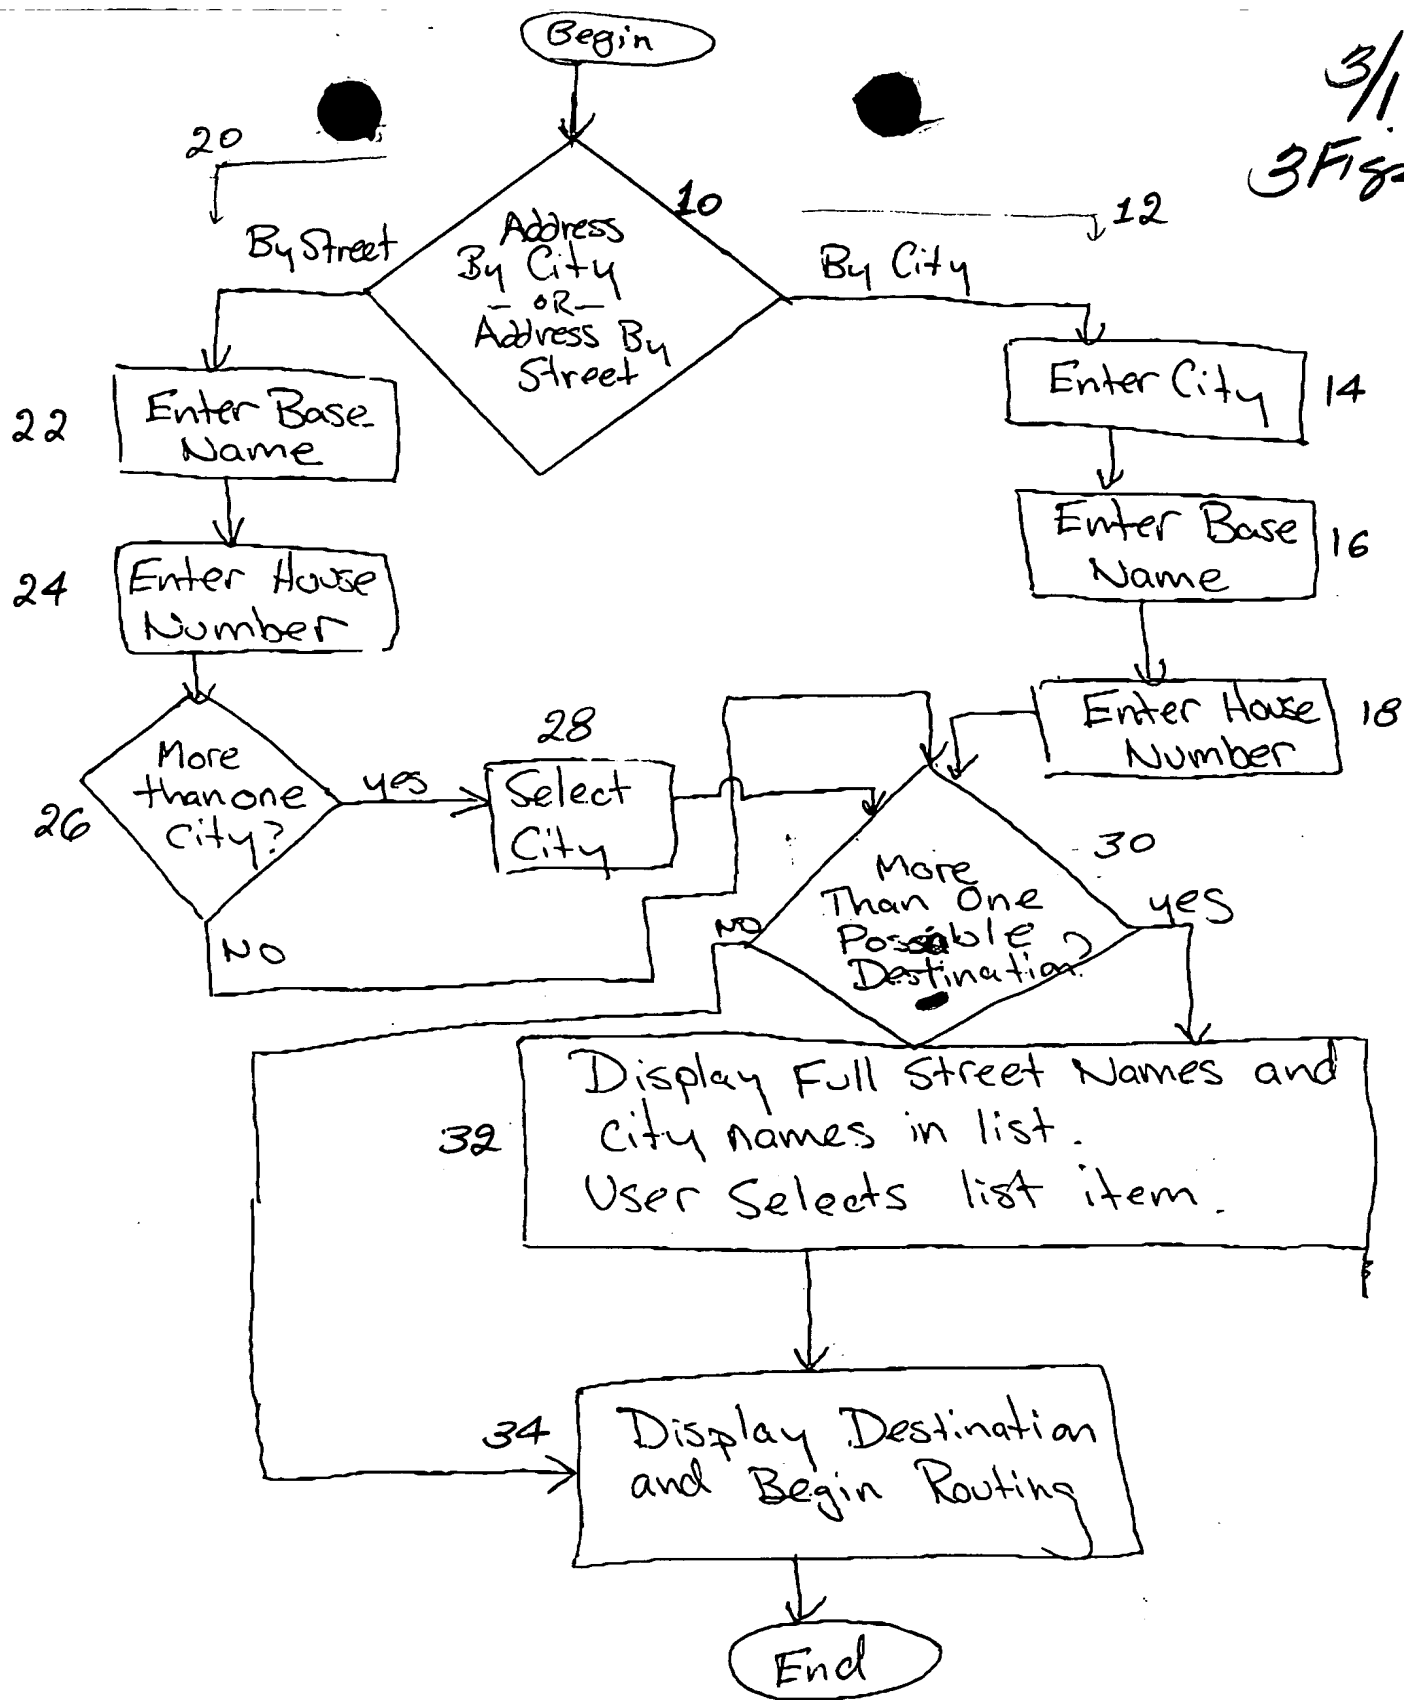 Begin
3/1
3 Figs
20
10
12
By Street
Address
By City
- OR -
Address By
Street
By City
22
Enter Base
Name
Enter City
14
Enter Base
Name
16
24
Enter House
Number
Enter House
Number
18
26
More
than one
City?
yes
28
Select
City
NO
30
More
Than One
Possible
Destination?
NO
yes
32
Display Full Street Names and
City names in list.
User Selects list item.
34
Display Destination
and Begin Routing
End